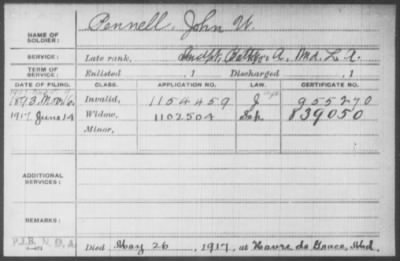 NAME OF SOLDIER: Pennell, John W.
SERVICE: Late rank, Indpt. Batty. A, Md. L. A.
TERM OF SERVICE: Enlisted , 1 Discharged , 1
DATE OF FILING. CLASS. APPLICATION NO. LAW. CERTIFICATE NO.
1893 Mch 6 Invalid, 1154459 J 955270
1917 June 14 Widow, 1102504 839050
Minor,
ADDITIONAL SERVICES:
REMARKS:
P.I.B. N. D. A. Died May 26, 1917, at Havre de Grace, Md.